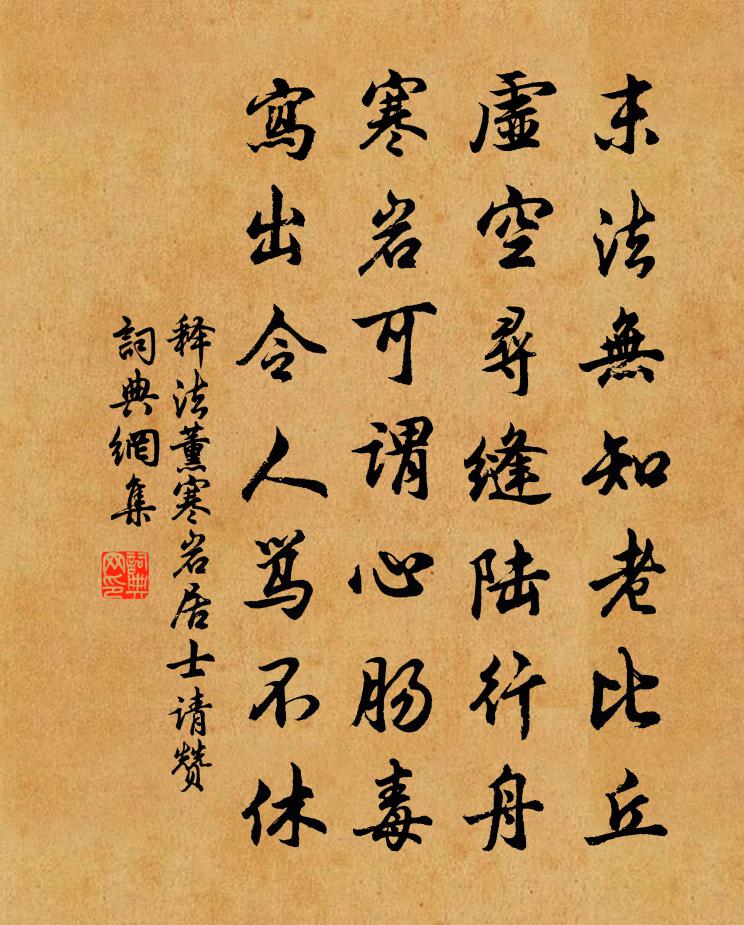 末法無知老比丘
虛空尋縫陆行舟
寒岩可謂心肠毒
寫出令人骂不休
释法薰寒岩居士请赞
詞典網集
詞典网印